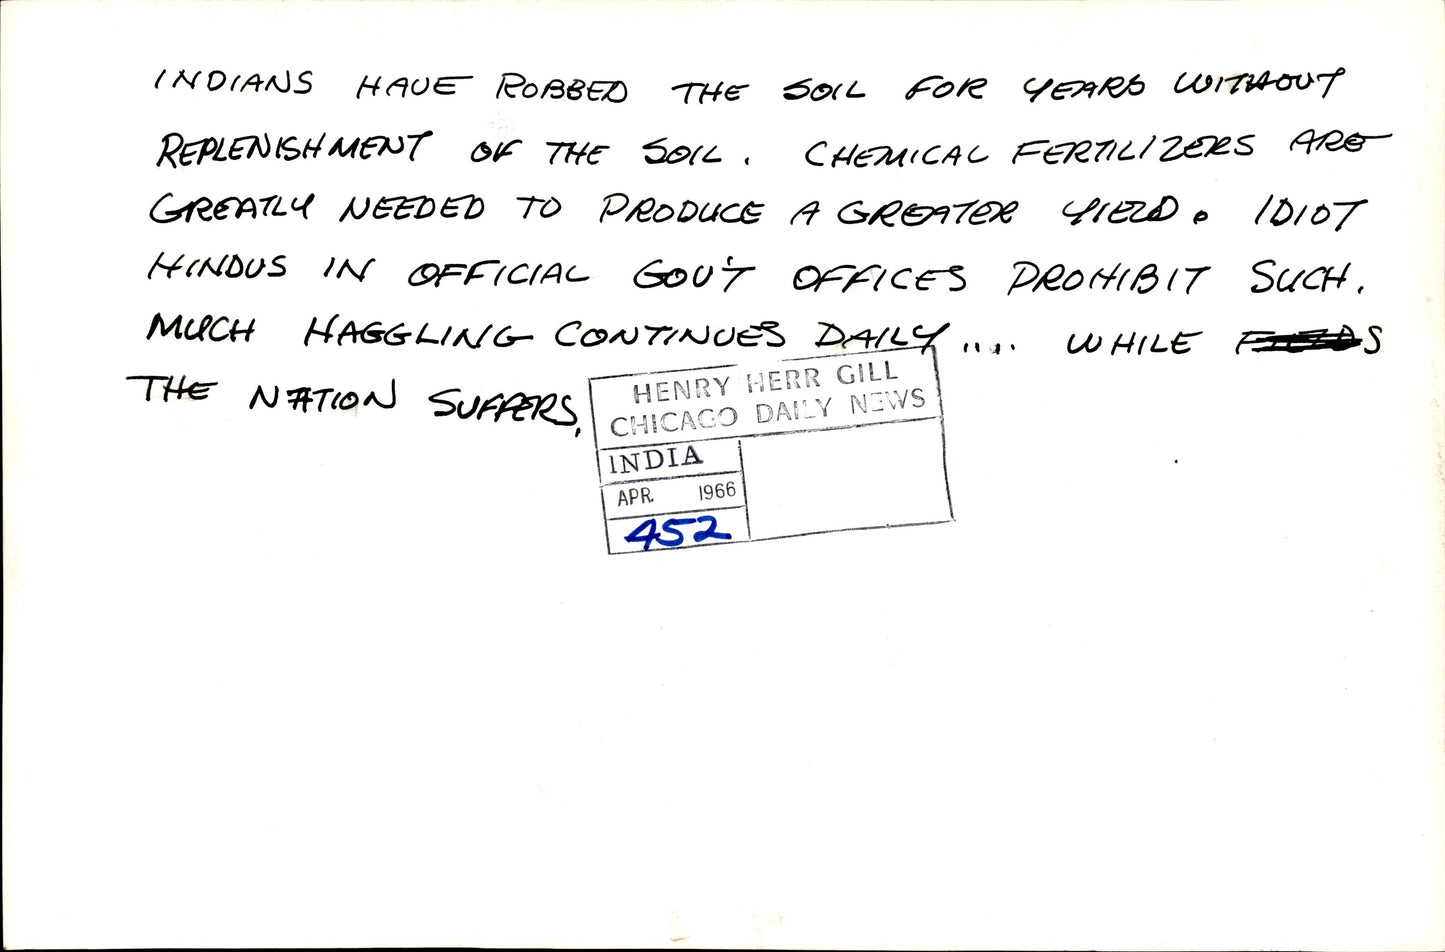 INDIANS HAVE ROBBED THE SOIL FOR YEARS WITHOUT
REPLENISHMENT OF THE SOIL. CHEMICAL FERTILIZERS ARE
GREATLY NEEDED TO PRODUCE A GREATER YIELD. IDIOT
HINDUS IN OFFICIAL GOV'T OFFICES PROHIBIT SUCH.
MUCH HAGGLING CONTINUES DAILY .... WHILE FIELDS
THE NATION SUFFERS.
HENRY HERR GILL
CHICAGO DAILY NEWS
INDIA
APR. 1966
452